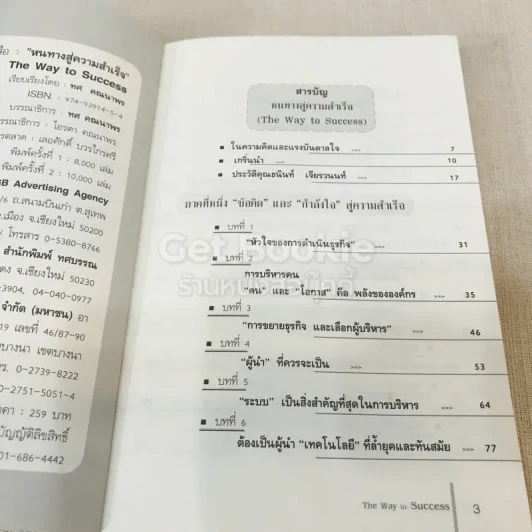 : "หนทางสู่ความสำเร็จ"
The Way to Success
เรียบเรียงโดย : ทศ คณนาพร
ISBN. : 974-93914-5-4
บรรณาธิการ : ทศ คณนาพร
: ไอรดา คณนาพร
: เลอศักดิ์ บวรไกรศรี
พิมพ์ครั้งที่ 1 : 8,000 เล่ม
พิมพ์ครั้งที่ 2 : 10,000 เล่ม
Advertising Agency
ถ.สนามบินเก่า ต.สุเทพ
อ.เมือง จ.เชียงใหม่ 50200
/ โทรสาร 0-5380-8766
สำนักพิมพ์ ทศบรรณ
จ.เชียงใหม่ 50230
-3904, 04-040-0977
จำกัด (มหาชน)
19 เลขที่ 46/87-90
บางนา เขตบางนา
0-2739-8222
0-2751-5051-4
: 259 บาท
01-686-4442
สารบัญ
หนทางสู่ความสำเร็จ
(The Way to Success)
■ ในความคิดและแรงบันดาลใจ >>> 7
■ เกริ่นนำ >>> 10
■ ประวัติคุณธนินท์ เจียรวนนท์ >>> 17
ภาคที่หนึ่ง "ข้อคิด" และ "กำลังใจ" สู่ความสำเร็จ
■ บทที่ 1
"หัวใจของการดำเนินธุรกิจ" >>> 31
■ บทที่ 2
การบริหารคน
"คน" และ "โอกาส" คือ พลังขององค์กร >>> 35
■ บทที่ 3
"การขยายธุรกิจ และเลือกผู้บริหาร" >>> 46
■ บทที่ 4
"ผู้นำ" ที่ควรจะเป็น >>> 53
■ บทที่ 5
"ระบบ" เป็นสิ่งสำคัญที่สุดในการบริหาร >>> 64
■ บทที่ 6
ต้องเป็นผู้นำ "เทคโนโลยี" ที่ล้ำยุคและทันสมัย >>> 77
Get Bookie
ร้านหนังสือตุ๊กตี้
The Way to Success 3